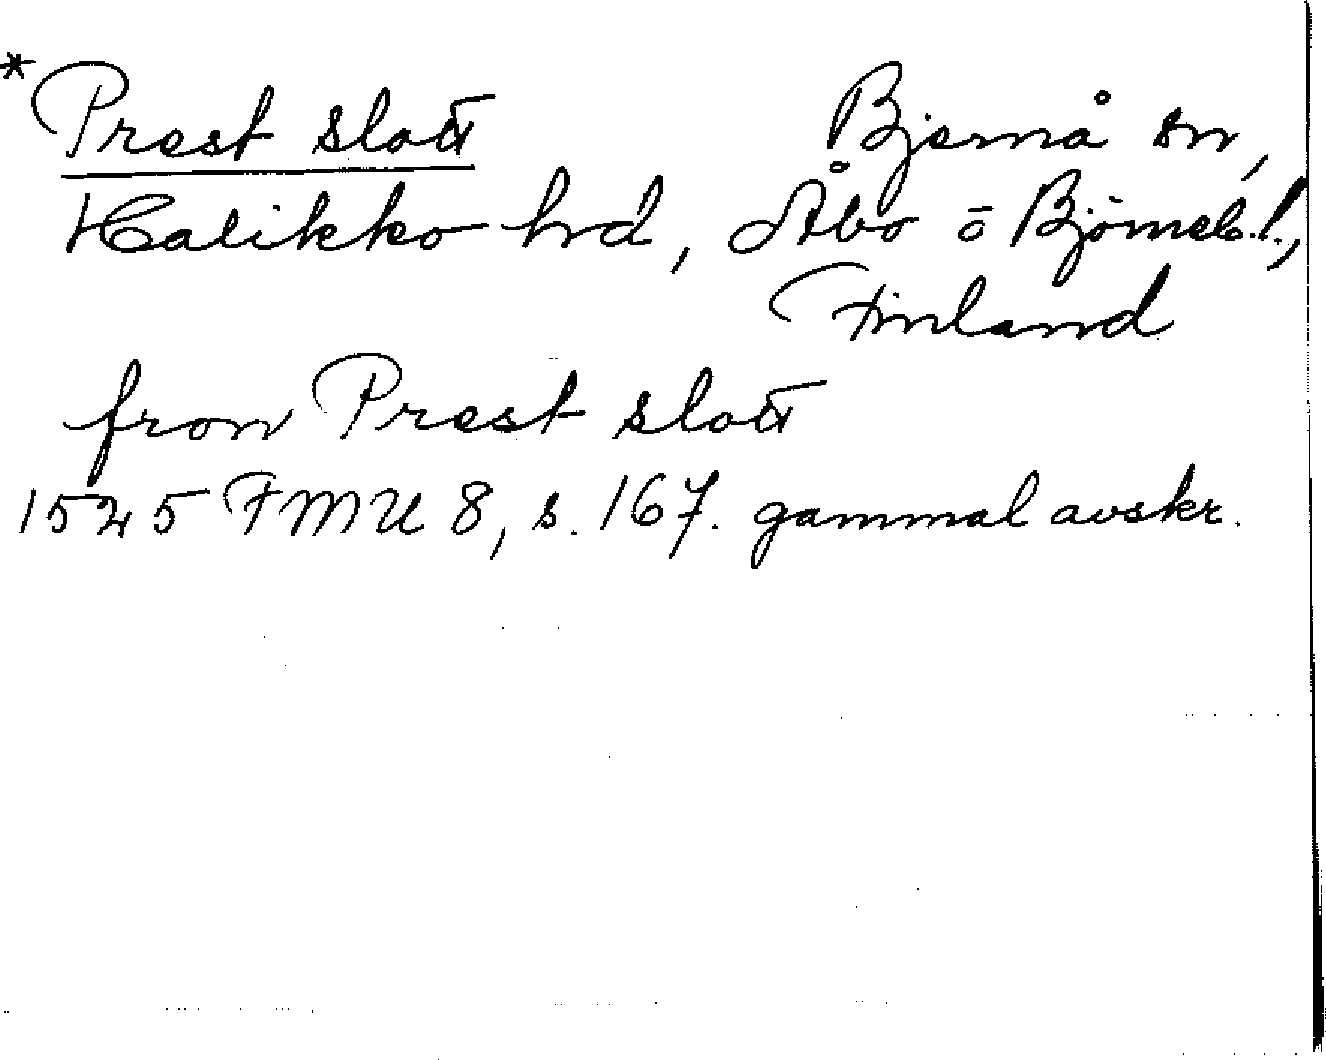 *Prest slott Bjernå sn,
Halikko hd, Åbo o Björneb.l.,
Finland
fron Prest slott
1525 FMU 8, s. 167. gammal avskr.